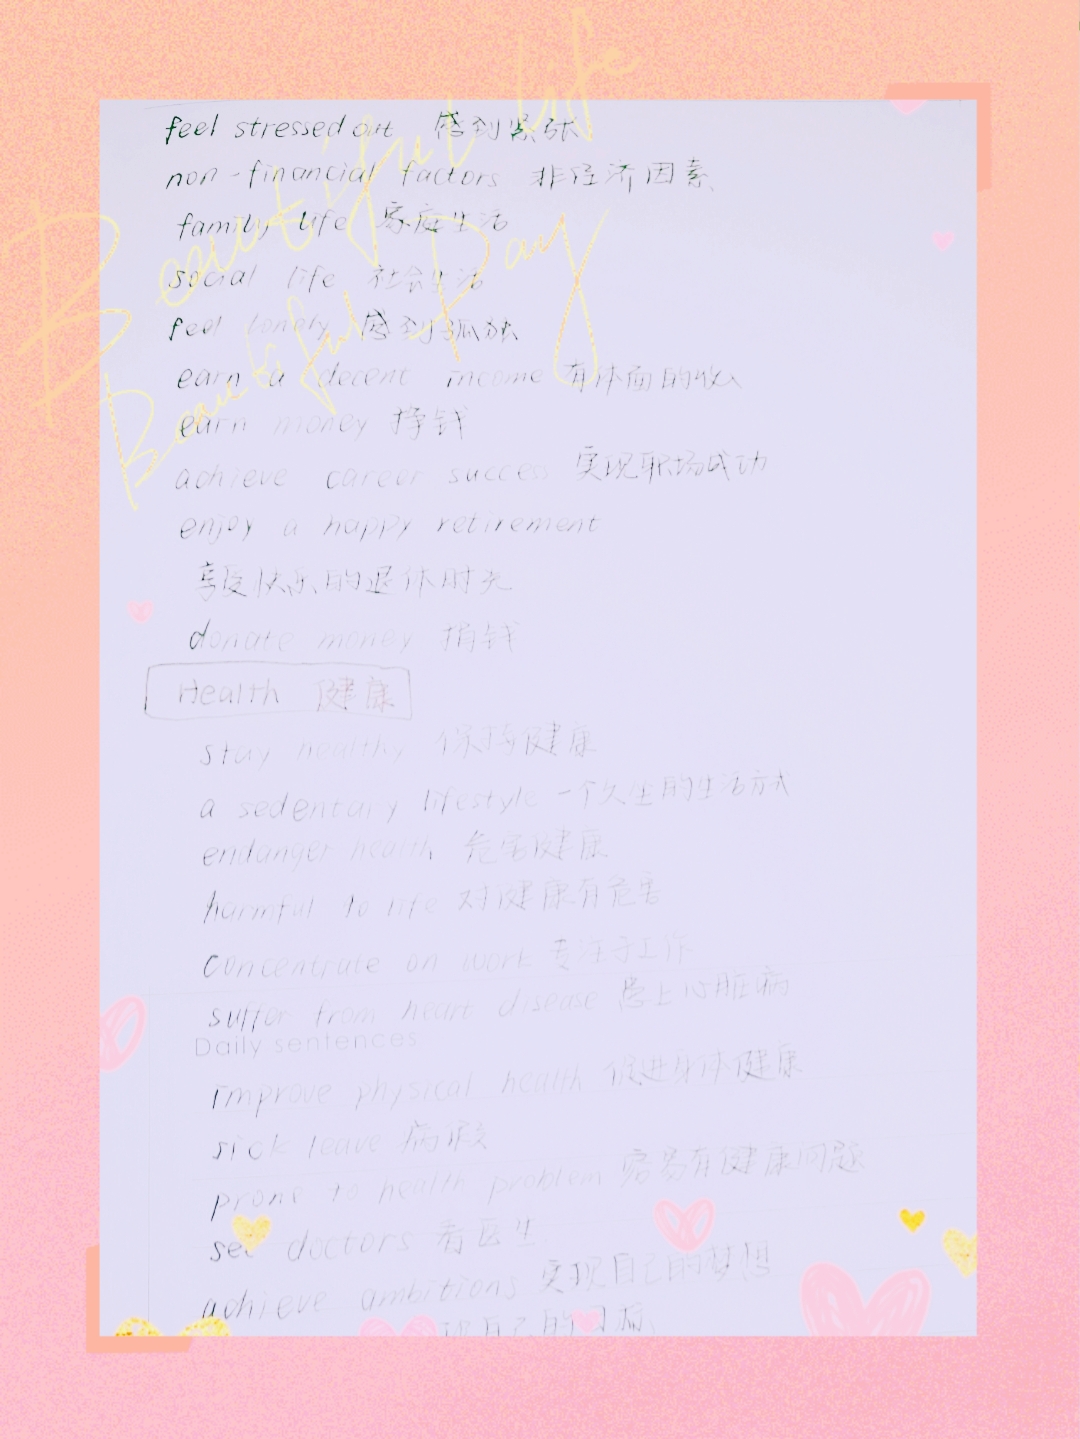 Beautiful Life
Beautiful Day
feel stressed out 感到紧张
non-financial factors 非经济因素
family life 家庭生活
social life 社会生活
feel lonely 感到孤独
earn a decent income 有体面的收入
earn money 挣钱
achieve career success 实现职场成功
enjoy a happy retirement
享受快乐的退休时光
donate money 捐钱
Health 健康
stay healthy 保持健康
a sedentary lifestyle 一个久坐的生活方式
endanger health 危害健康
harmful to life 对健康有危害
concentrate on work 专注于工作
suffer from heart disease 患上心脏病
Daily sentences
improve physical health 促进身体健康
sick leave 病假
prone to health problem 容易有健康问题
see doctors 看医生
achieve ambitions 实现自己的梦想
现自己的目标